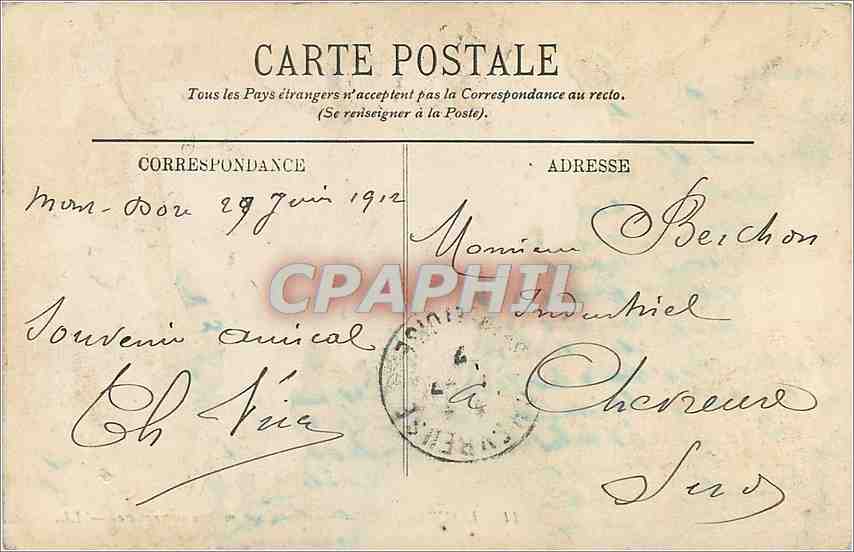 CARTE POSTALE
Tous les Pays étrangers n'acceptent pas la Correspondance au recto.
(Se renseigner à la Poste).
CORRESPONDANCE
Mont-Dore 29 Juin 1912
Souvenir amical
Th
ADRESSE
Monsieur Berchon
Industriel
à Chevreuse
CHEVREUSE
CPAPHIL